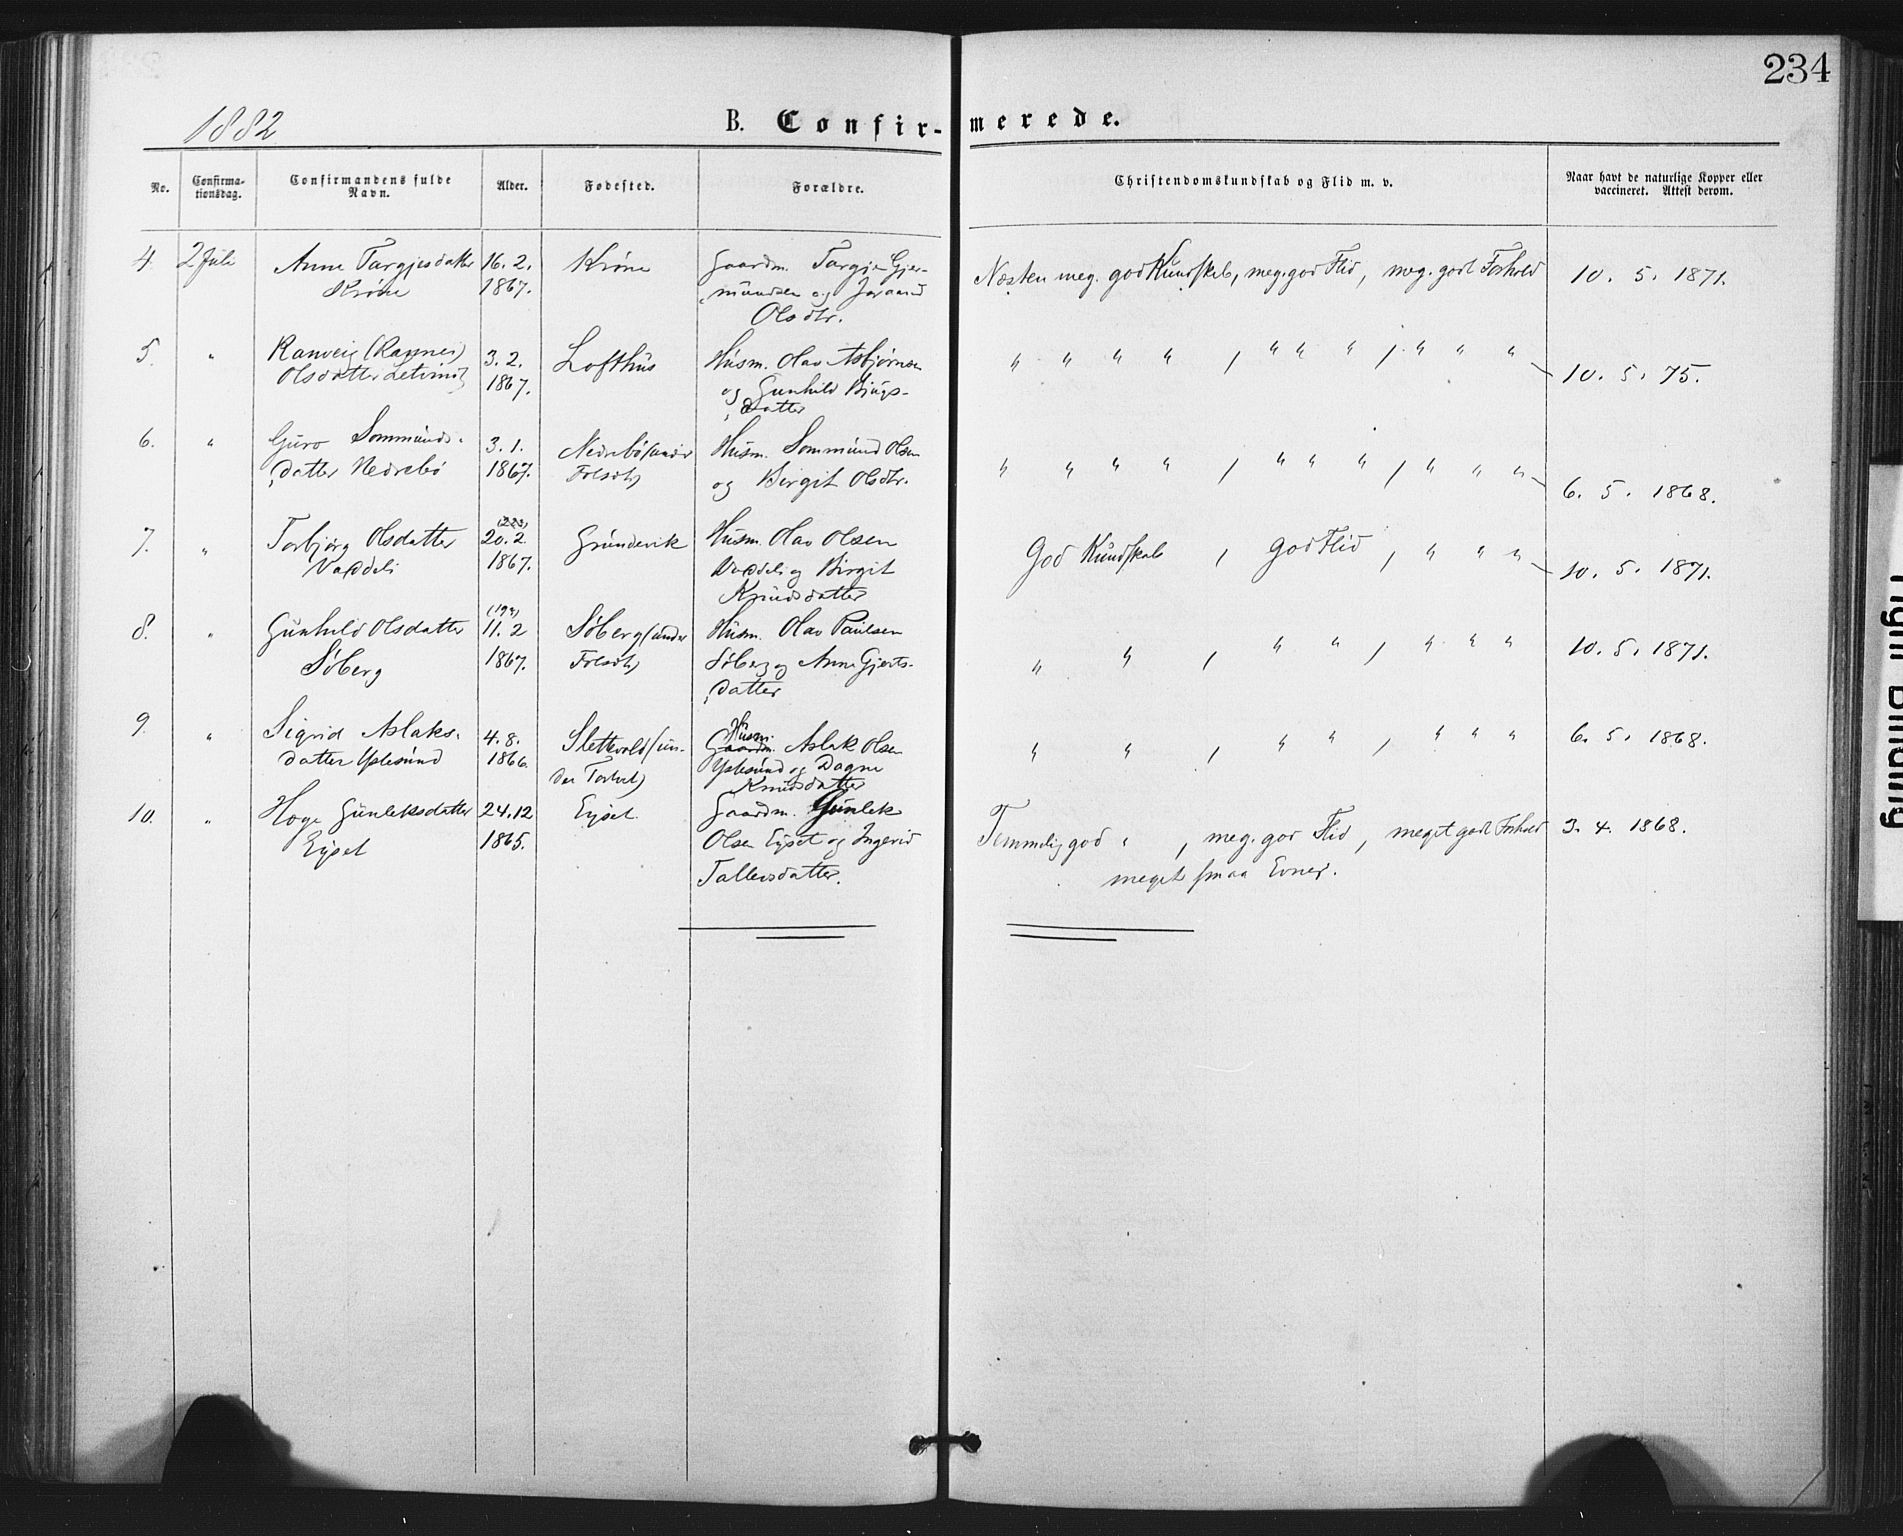 234
1882
B. Confirmerede.
No. Confirmationsdag. Confirmandens fulde Navn. Alder. Fødested. Forældre. Christendomskundskab og Flid m. v. Naar havt de naturlige Kopper eller vaccineret. Attest derom.
4. 2 Juli Anne Targjesdatter 16. 2. Króne Gaardm. Targje Gjer- Næsten meg. god Kundskab, meg. god Flid, meg. godt Forhold 10. 5. 1871.
Króne 1867. mundsen og
Olsdtr.
5. " Ranveig (Ragnei) 3. 2. Lofthus Husm. Olav Asbjørnsen " " " " , " " " , " " "
Olsdatter 1867. og Gunhild Bjugs- 10. 5. 75.
datter
6. " Guro Sommunds- 3. 1. Nedrebö (under Husm. Sommund Olsen " " " " , " " " , " " "
datter Nedrebö 1867. og Birgit Olsdtr. 6. 5. 1868.
7. " Torbjørg Olsdatter 20. 2. Grundevik Husm. Olav Olsen God Kundskab , god Flid , " " "
Vaddeli 1867. Vaddeli og Birgit 10. 5. 1871.
Knudsdatter
8. " Gunhild Olsdatter 11. 2 Söberg (under Husm. Olav Paulsen " " , " " , " " " 10. 5. 1871.
Söberg 1867. Söberg og Anne Gjerts-
datter
9. " Sigrid Aslaks- 4. 8. Slettevold (un- Husm. Gaardm. Aslak Olsen " " , " " , " " " 6. 5. 1868.
datter Yslesund 1866. der Yslesund og Dagne
Knudsdatter
10. " Hoge Gunleksdatter 24. 12 Ejset Gaardm. Gunlek Temmelig god " , meg. god Flid , meget godt Forhold 3. 4. 1868.
Ejset 1865. Olsen Ejset og Ingerid meget smaa Evner.
Tallevsdatter.